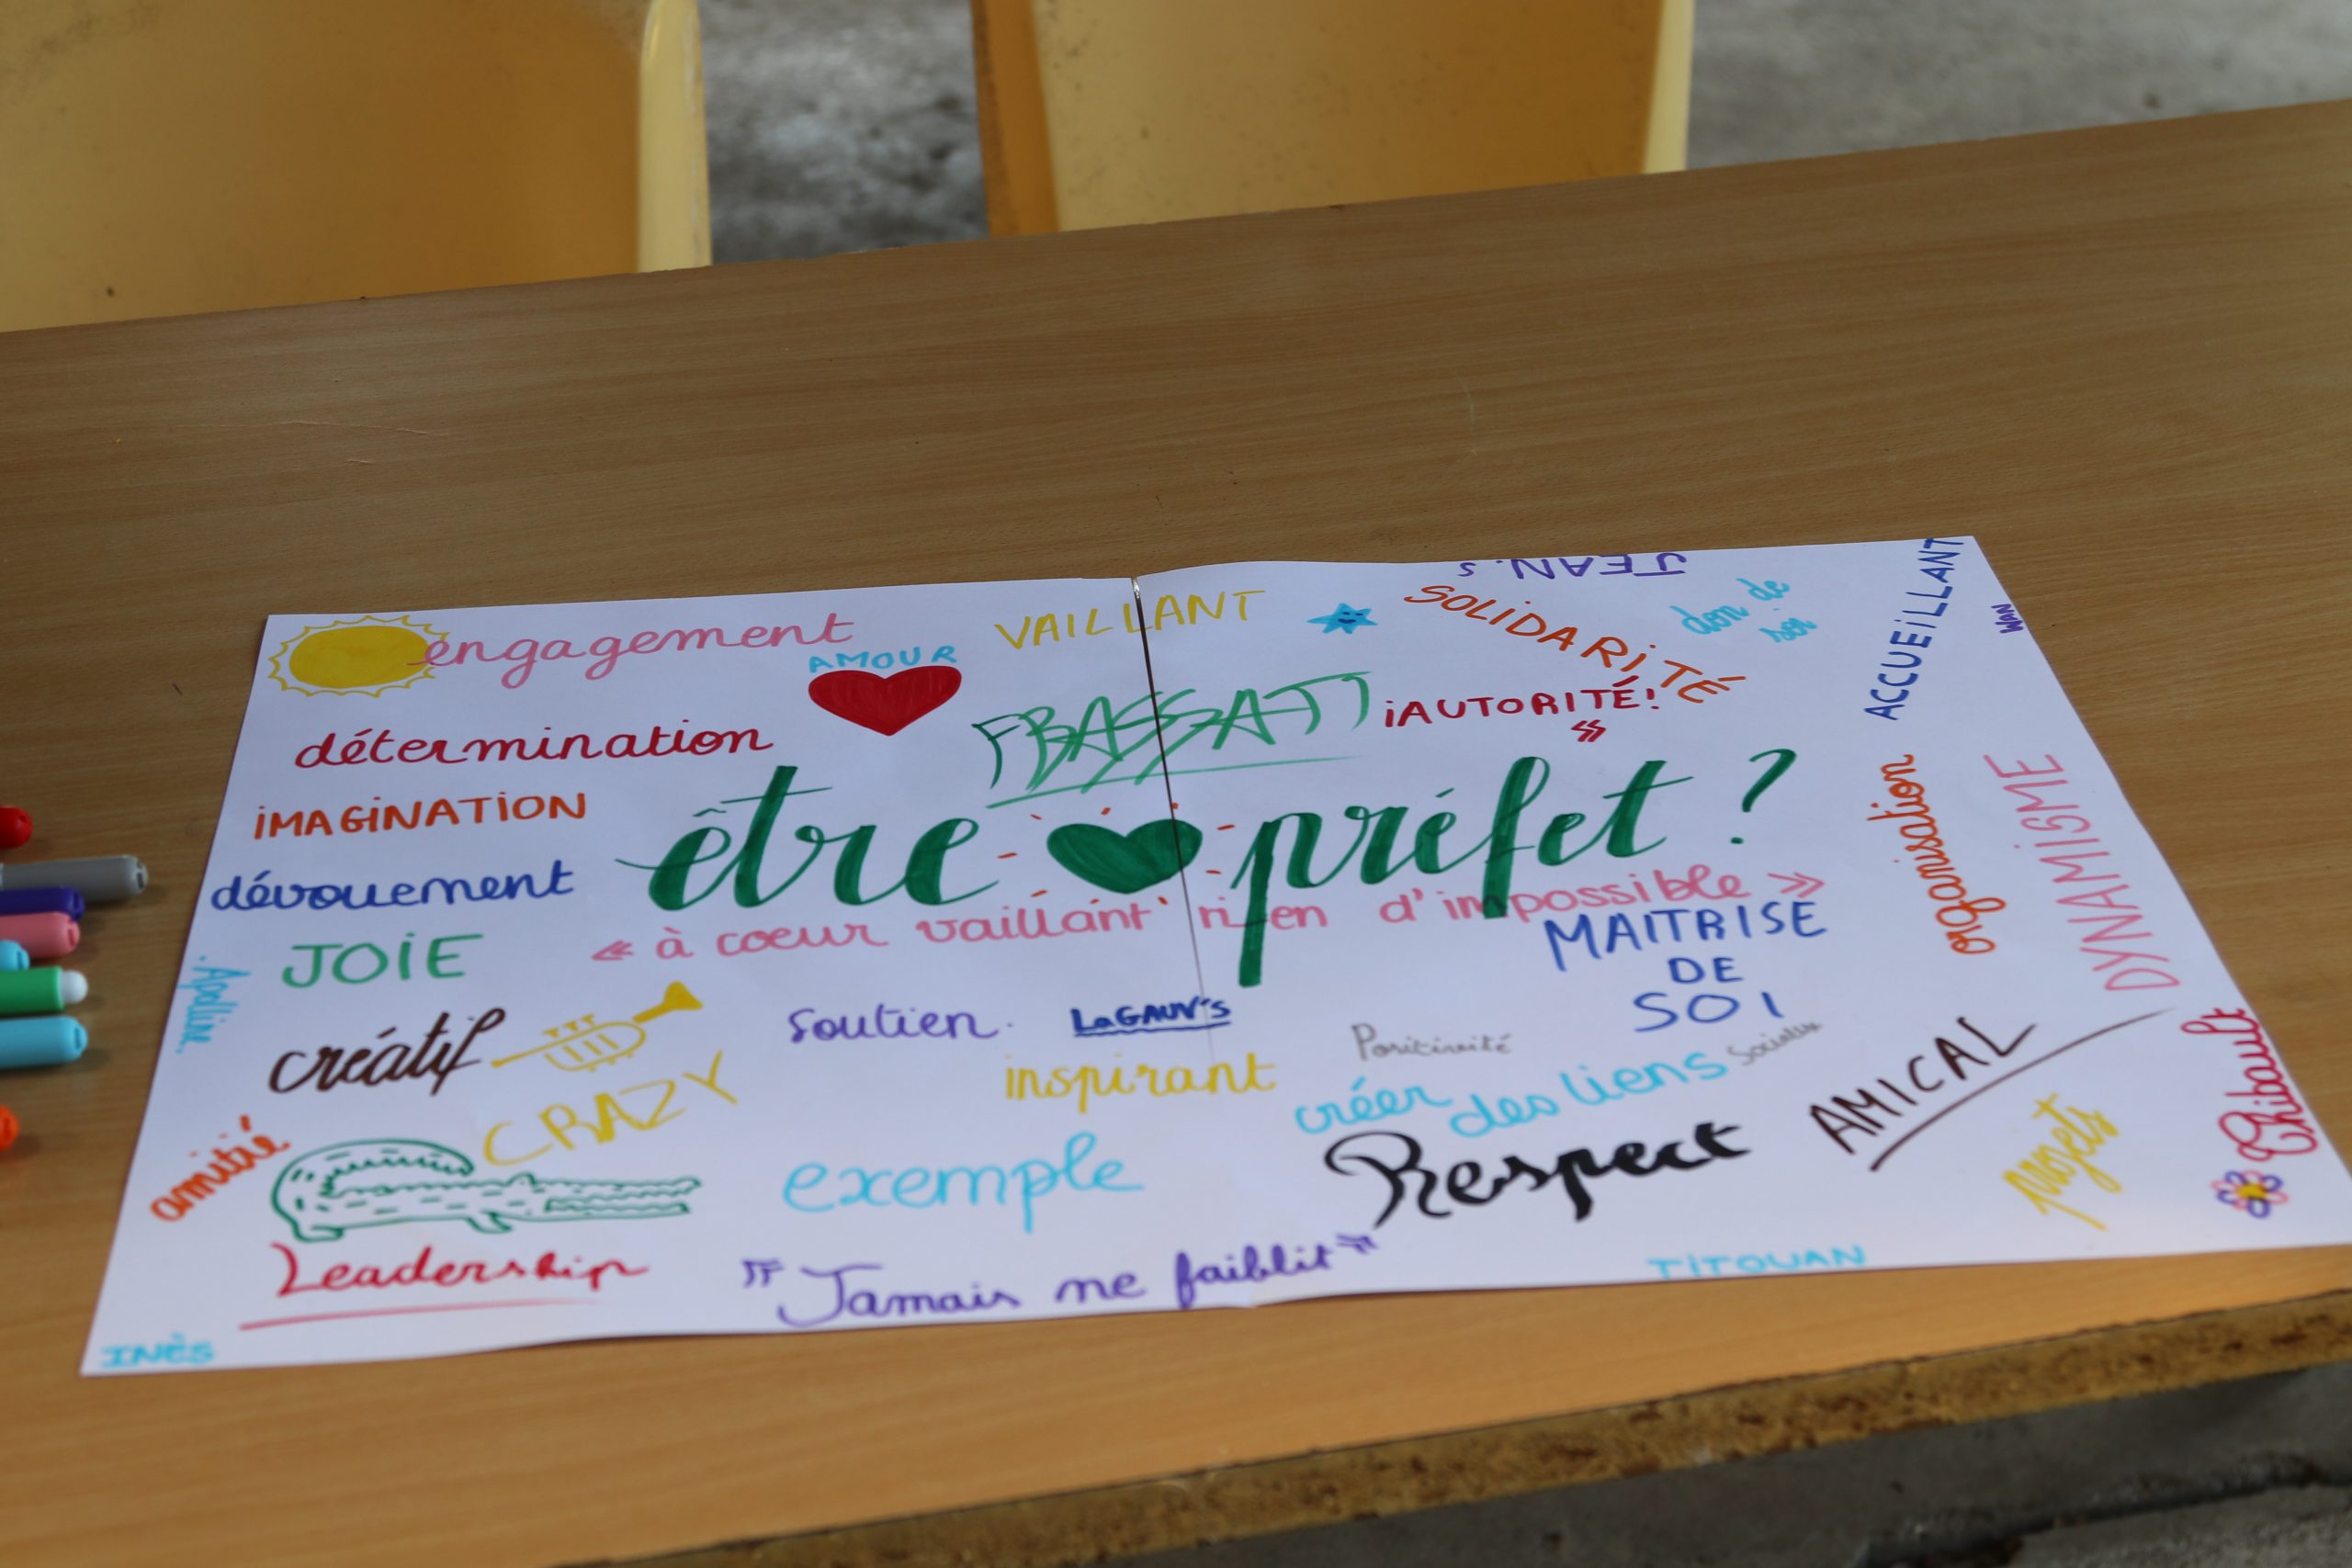 JEAN.S
engagement
VAILLANT
SOLiDARiTÉ
don de
soi
ACCUEiLLANT
AMOUR
FBASSATI
¡AUTORITÉ!
détermination
iMAGiNATiON
être préfet ?
organisation
DYNAMISME
dévouement
« à coeur vaillant rien d'impossible »
MAITRISE
DE
SOI
JOiE
.Apolline.
créatif
soutien.
LaGAUV's
Positivité
CRAZY
inspirant
créer des liens
sociaux
AMICAL
Thibault
amitié
exemple
Respect
projets
Leadership
"Jamais ne faiblit"
TiTOUAN
INÈS